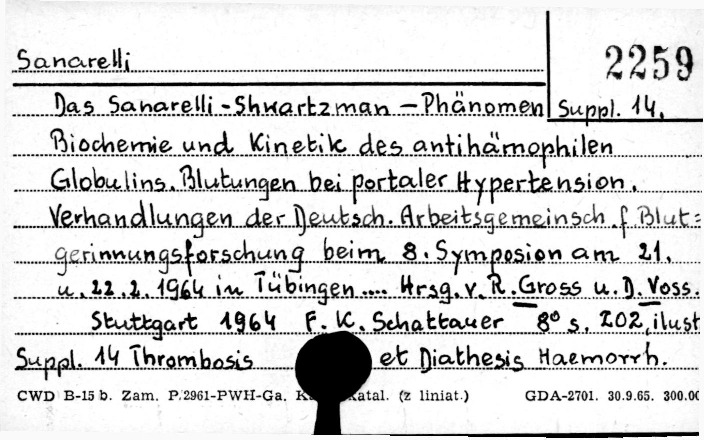 Sanarelli
2259
Das Sanarelli-Shwartzman-Phänomen Suppl. 14.
Biochemie und Kinetik des antihämophilen
Globulins. Blutungen bei portaler Hypertension.
Verhandlungen der Deutsch. Arbeitsgemeinsch. f Blut=
gerinnungsforschung beim 8. Symposion am 21.
u. 22.2.1964 in Tübingen.... Hrsg. v. R. Gross u. D. Voss.
Stuttgart 1964 F. K. Schattauer 8° s. 202, ilust
Suppl. 14 Thrombosis et Diathesis Haemorrh.
CWD B-15 b. Zam. P.2961-PWH-Ga. katal. (z liniat.) GDA-2701. 30.9.65. 300.00